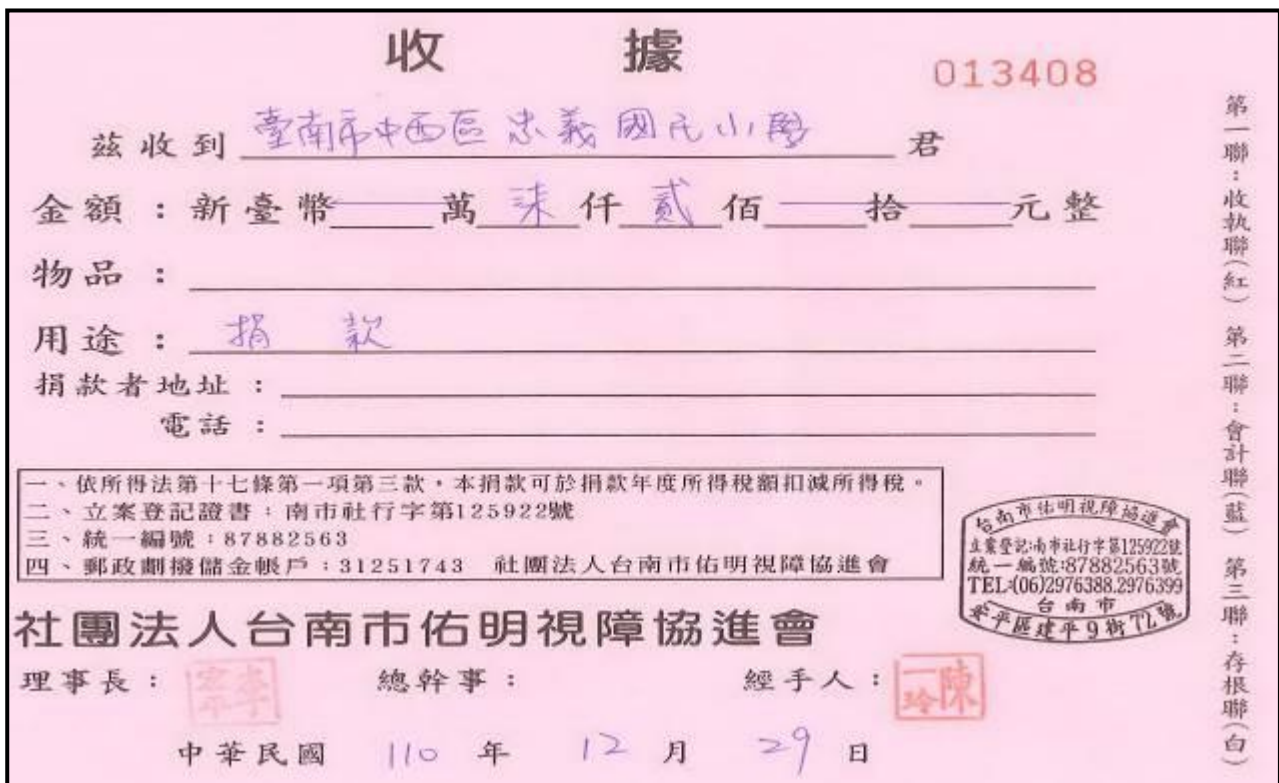 收 據
013408
茲收到 臺南市中西區忠義國民小學 君
金額：新臺幣 萬 柒 仟 貳 佰 拾 元整
物品：
用途： 捐 款
捐款者地址：
電話：
一、依所得法第十七條第一項第三款，本捐款可於捐款年度所得稅額扣減所得稅。
二、立案登記證書：南市社行字第125922號
三、統一編號：87882563
四、郵政劃撥儲金帳戶：31251743 社團法人台南市佑明視障協進會
台南市佑明視障協進會
立案登記:南市社行字第125922號
統一編號:87882563號
TEL:(06)2976388.2976399
台南市
安平區建平9街72號
社團法人台南市佑明視障協進會
理事長： 總幹事： 經手人： 陳一玲
中華民國 110 年 12 月 29 日
第一聯：收執聯（紅） 第二聯：會計聯（藍） 第三聯：存根聯（白）